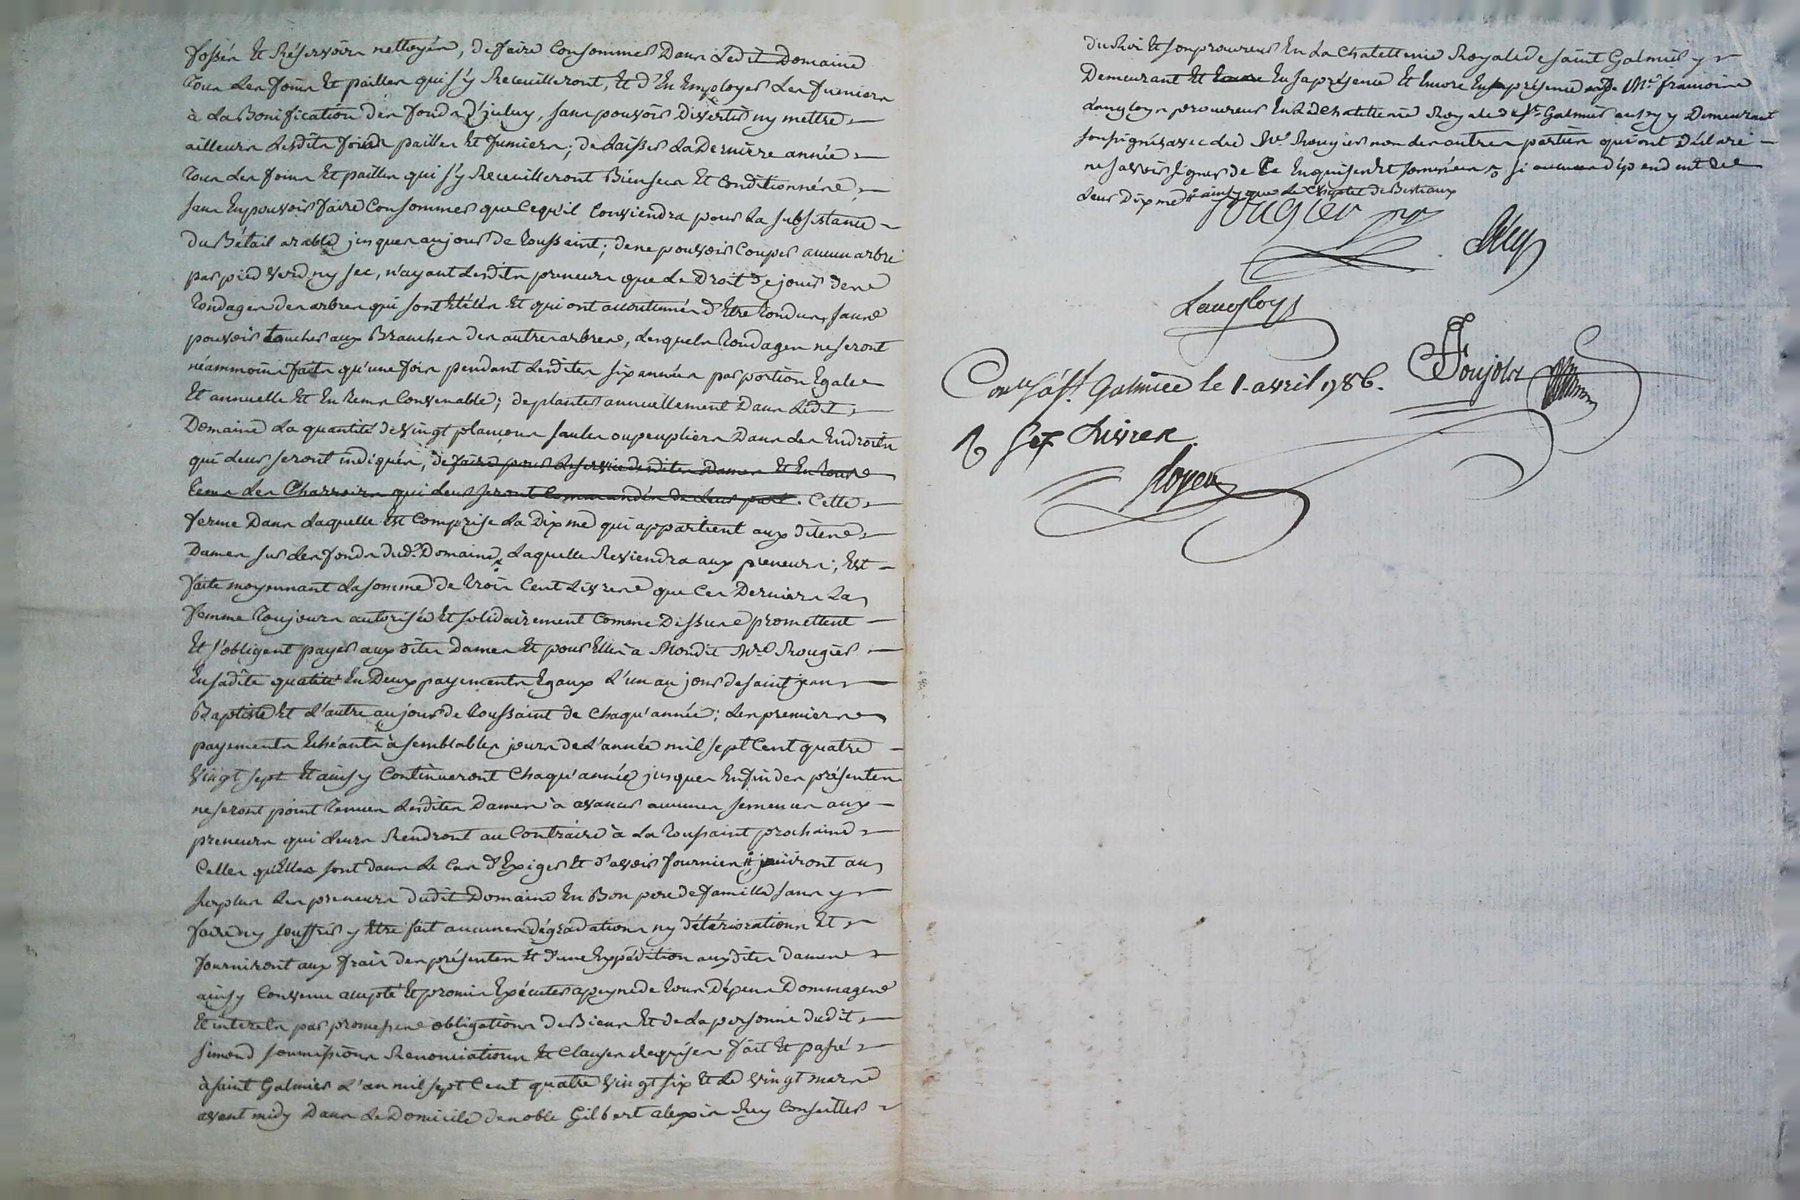 fossés Et Réservoirs nettoyés, de faire Consommer Dans Ledit Domaine
tous Les foins Et pailles qui s'y Receuilleront, Et d'En Employer Les fumiers
à La Bonification des fonds d'iceluy, sans pouvoir Divertir ny mettre
ailleurs Lesdits foins pailles Et fumiers; de Laisser La Derniere année
tous Les foins Et pailles qui s'y Receuilleront Bien secs Et Conditionnés,
sans En pouvoir faire Consommer que Ce qu'il Conviendra pour La subsistance
du Bétail arable jusques au jour de toussaint; de ne pouvoir Couper aucun arbre
par pied verd ny sec, n'ayant Lesdits preneurs que Le Droit de jouir de
tondages des arbres qui sont Etêtés Et qui ont accoutumés d'Etre tondus, sans
pouvoir toucher aux Branches des autres arbres, Lesquels tondages ne seront
néammoins faits qu'une fois pendant Lesdites six années par portion Egale
Et annuelle Et En tems Convenable; de planter annuellement Dans Ledit
Domaine La quantité de vingt plançons saules ou peupliers Dans Les Endroits
qui Leur seront indiqués, de faire pour Le service desdites Dames Et En tout
tems Les Charrois qui Leur seront Commandés de Leur part. Cette
ferme Dans Laquelle Est Comprise La Dixme qui appartient aux dites
Dames sur Les fonds dud. Domaine Laquelle Reviendra aux preneurs; Est
faite moyennant La somme de trois Cent Livres que Ces Derniers La
femme toujours autorisée Et solidairement Comme Dessus promettent
Et s'obligent payer aux dites Dames Et pour Elles a Mondit Me. Rougier
En sadite qualité En Deux payements Egaux L'un au jour de saint jean
Baptiste Et L'autre au jour de toussaint de Chaqu'année; Les premiers
payements Echéants à semblables jours de L'année mil sept Cent quatre
vingt sept Et ainsy Continueront Chaqu'année jusques Enfin des présentes
ne seront point tenues Lesdites Dames à avancer aucunes semences aux
preneurs qui Leurs Rendront au Contraire à La toussaint prochaine
Celles qu'Elles sont dans Le Cas d'Exiger Et d'avoir fournies jouiront au
surplus Les preneurs dudit Domaine En Bon pere de famille sans y
faire ny souffrir y Etre fait aucunes dégradations ny détériorations Et
fourniront aux frais des présentes Et d'une Expédition auxdites dames
ainsy Convenu accepté Et promis Exécuter a peyne de tous Dépens Dommages
Et interets par promesses obligations de Biens Et de La personne dudit
simond soumissions Renonciations Et Clauses Requises fait Et passé
à saint Galmier L'an mil sept Cent quatre vingt six Et Le vingt mars
avant midy Dans Le Domicile de noble Gilbert alexis Rey Conseiller
du Roi Et son procureur En La Chatellenie Royale de saint Galmier y
Demeurant Et En sa présence Et Encore En présence de Me. francois
Langloys procureur En La Chatellenie Royale de St. Galmier aussy y Demeurant
soussignés avec led. Me. Rougier non Les autres parties qui ont Déclaré
ne savoir signer de Ce Enquises Et sommées
Leur Dixme ainsy que Le Cheptel de Bestiaux
Rougier
Rey
Langloys
Con.lé à St. Galmier le 1. avril 1786.
Poujolx
R Sept Livres
Royer